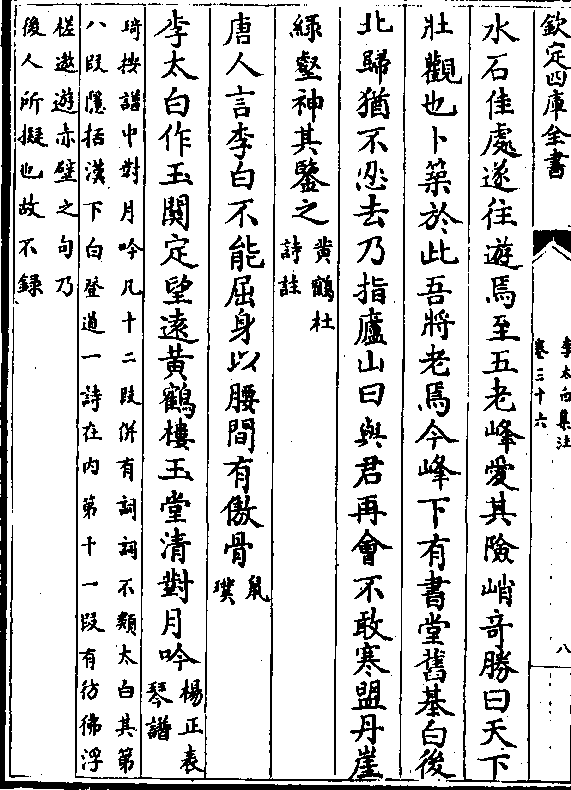 欽定四庫全書
李太白集注
卷三十六
八
水石佳處遂往遊焉至五老峰愛其險峭竒勝曰天下
壯觀也卜築於此吾將老焉今峰下有書堂舊基白後
北歸猶不忍去乃指廬山曰與君再會不敢寒盟丹崖
綠壑神其鑒之黄鶴杜
詩註
唐人言李白不能屈身以腰間有傲骨䑕
璞
李太白作玉關定望遠黄鶴樓玉堂清對月吟楊正表
琴譜
琦按譜中對月吟凡十二段併有詞詞不類太白其第
八段隱括漢下白登道一詩在内第十一段有彷彿浮
槎遨遊赤壁之句乃
後人所擬也故不録